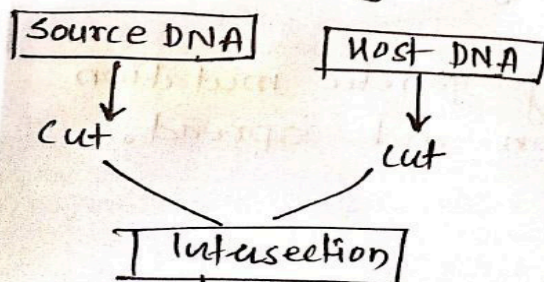 Source DNA
Host DNA
Cut
Cut
Intersection